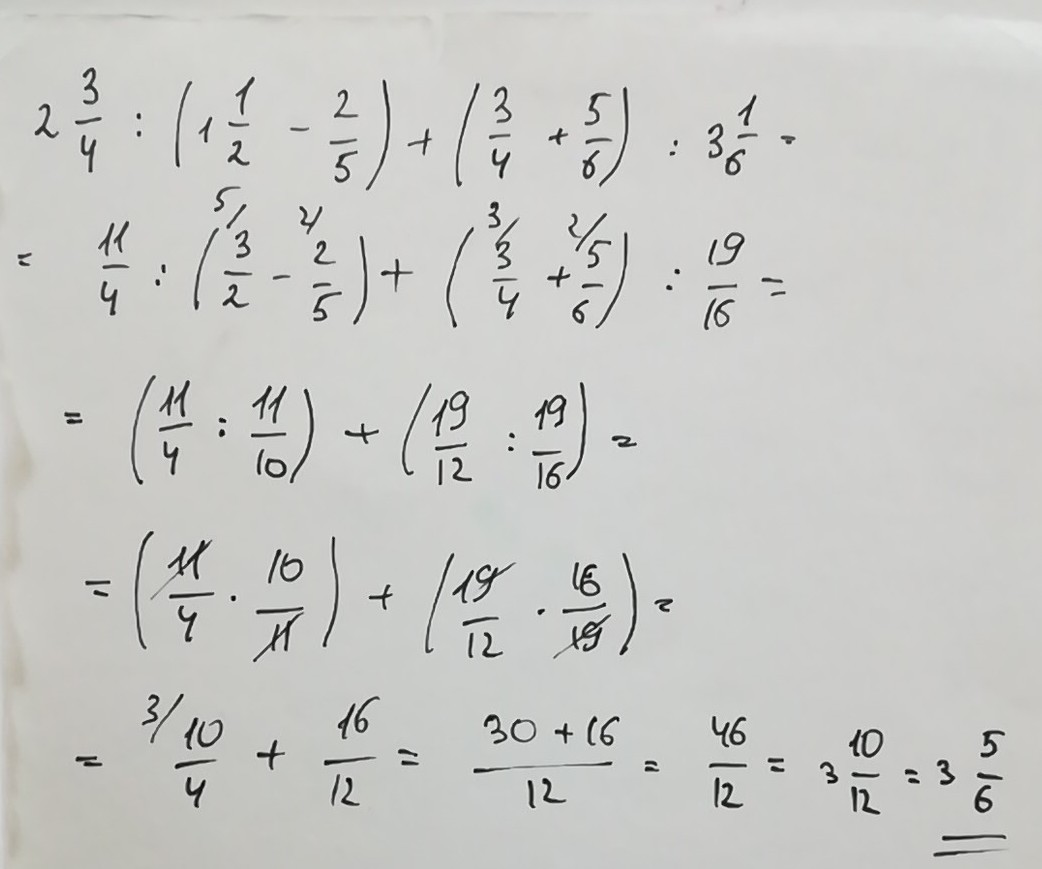 2 3/4 : (1 1/2 - 2/5) + (3/4 + 5/6) : 3 1/6 =
= 11/4 : (5/ 3/2 - 2/ 2/5) + (3/ 3/4 + 2/ 5/6) : 19/16 =
= (11/4 : 11/10) + (19/12 : 19/16) =
= (11/4 · 10/11) + (19/12 · 16/19) =
= 3/ 10/4 + 16/12 = (30 + 16)/12 = 46/12 = 3 10/12 = 3 5/6